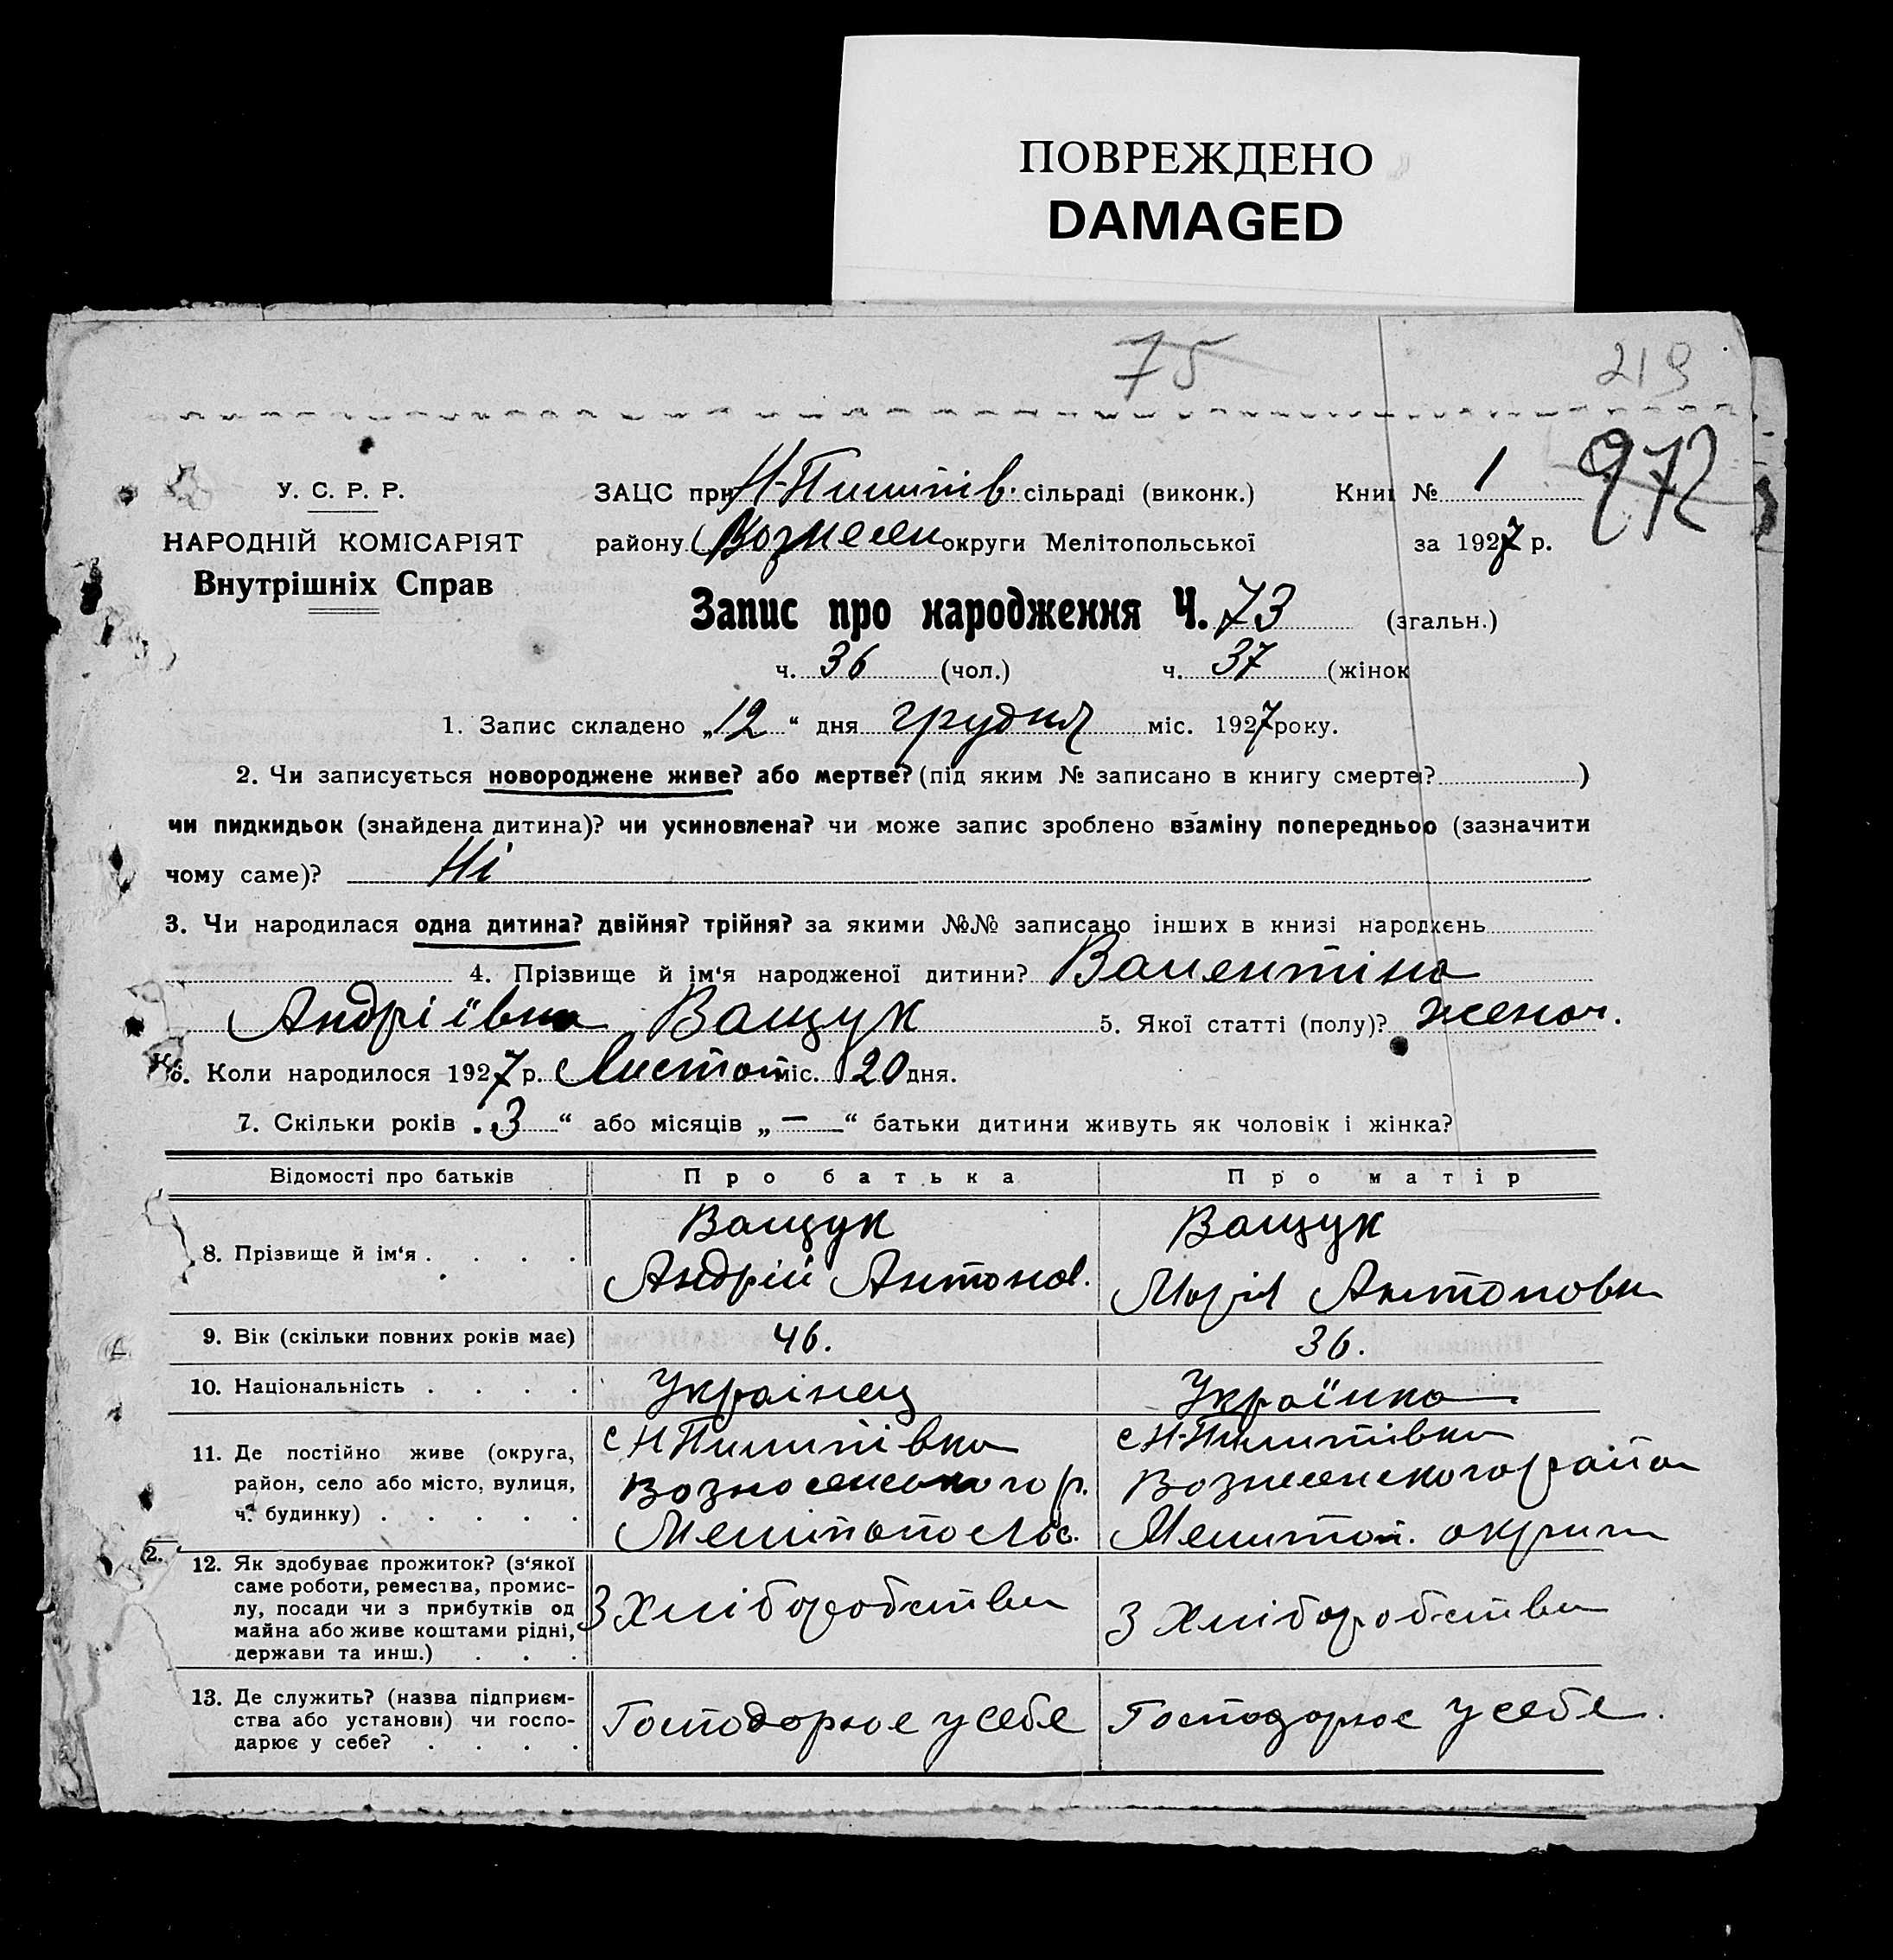 ПОВРЕЖДЕНО
DAMAGED
75
219
972
У. С. Р. Р.
НАРОДНІЙ КОМІСАРІЯТ
Внутрішніх Справ
ЗАЦС при Н-Пилипів. сільраді (виконк.) Книг № 1
району Вознесен округи Мелітопольської за 1927 р.
Запис про народження Ч. 73 (згальн.)
ч. 36 (чол.) ч. 37 (жінок
1. Запис складено „12“ дня грудня міс. 1927 року.
2. Чи записується новороджене живе? або мертве? (під яким № записано в книгу смерте? )
чи пидкидьок (знайдена дитина)? чи усиновлена? чи може запис зроблено взаміну попередньоо (зазначити
чому саме)? Ні
3. Чи народилася одна дитина? двійня? трійня? за якими №№ записано інших в книзі народжень
4. Прізвище й ім‘я народженої дитини? Валентіна
Андріївна Ващук 5. Якої статті (полу)? женоч.
6. Коли народилося 1927 р. Листоп міс. 20 дня.
7. Скільки років „3“ або місяців „—“ батьки дитини живуть як чоловік і жінка?
Відомості про батьків Про батька Про матір
8. Прізвище й ім‘я . . . . Ващук Андрій Антонов. Ващук Марія Антоновн
9. Вік (скільки повних років має) 46. 36.
10. Національність . . . . Украінец Україинка
11. Де постійно живе (округа,
район, село або місто, вулиця,
ч. будинку) . . . . .
с Н Пилипівка
Вознесенського р.
Мелітопольс.
с Н-Пилипівка
Вознесенского район
Мелитоп. округи
12. Як здобуває прожиток? (з‘якої
саме роботи, ремества, промис-
лу, посади чи з прибутків од
майна або живе коштами рідні,
держави та инш.) . . .
З Хліборобства
З Хліборобства
13. Де служить? (назва підприєм-
ства або установи) чи госпо-
дарює у себе? . . . .
Господорює у себе
Господорює у себе.